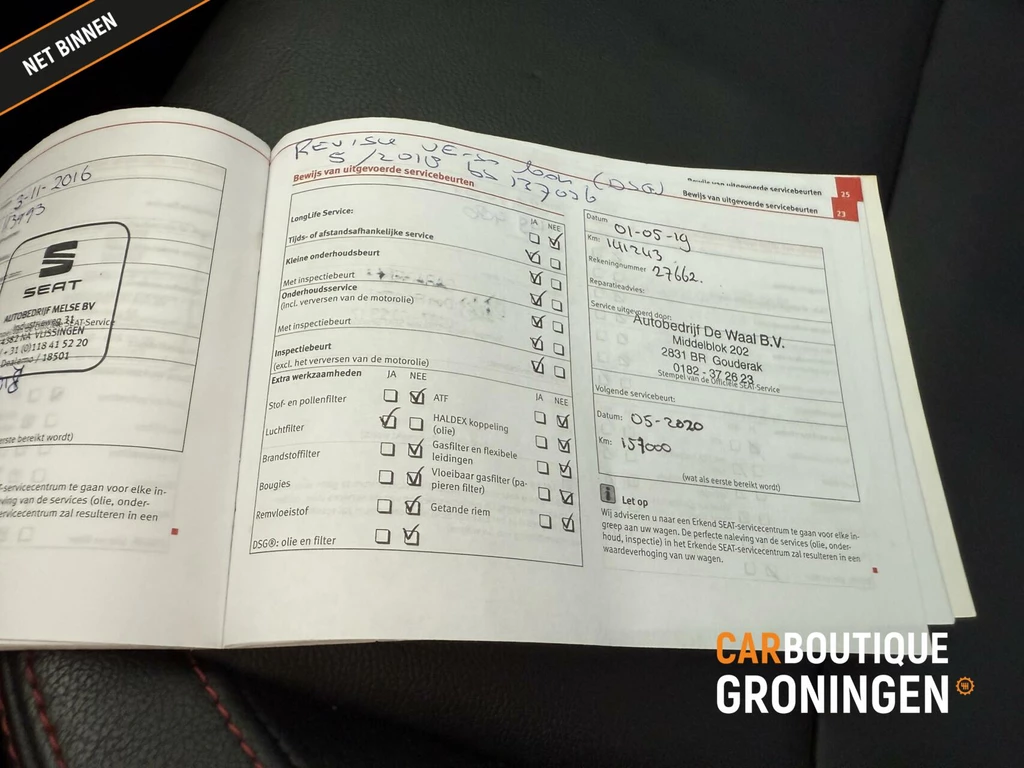 NET BINNEN
3-11-2016
SEAT
AUTOBEDRIJF MELSE BV
Industrieweg 31
4382 NA VLISSINGEN
+ 31 (0)118 41 52 20
Dealerno / 18501
SEAT-Service
eerste bereikt wordt)
-servicecentrum te gaan voor elke in-
ving van de services (olie, onder-
ervicecentrum zal resulteren in een
Revisie versn bak (DSG)
5/2018
137036
Bewijs van uitgevoerde servicebeurten
LongLife Service:
JA NEE
Tijds- of afstandsafhankelijke service
Kleine onderhoudsbeurt
Met inspectiebeurt
Onderhoudsservice
(incl. verversen van de motorolie)
Met inspectiebeurt
Inspectiebeurt
(excl. het verversen van de motorolie)
Extra werkzaamheden JA NEE JA NEE
Stof- en pollenfilter
ATF
Luchtfilter
HALDEX koppeling
(olie)
Brandstoffilter
Gasfilter en flexibele
leidingen
Bougies
Vloeibaar gasfilter (pa-
pieren filter)
Remvloeistof
Getande riem
DSG®: olie en filter
Bewijs van uitgevoerde servicebeurten 25
Bewijs van uitgevoerde servicebeurten 23
Datum 01-05-19
Km: 141243
Rekeningnummer 27662.
Reparatieadvies:
Service uitgevoerd door:
Autobedrijf De Waal B.V.
Middelblok 202
2831 BR Gouderak
0182 - 37 26 23
Stempel van de Officiële SEAT-Service
Volgende servicebeurt:
Datum: 05-2020
Km: 157000
(wat als eerste bereikt wordt)
Let op
Wij adviseren u naar een Erkend SEAT-servicecentrum te gaan voor elke in-
greep aan uw wagen. De perfecte naleving van de services (olie, onder-
houd, inspectie) in het Erkende SEAT-servicecentrum zal resulteren in een
waardeverhoging van uw wagen.
CARBOUTIQUE
GRONINGEN